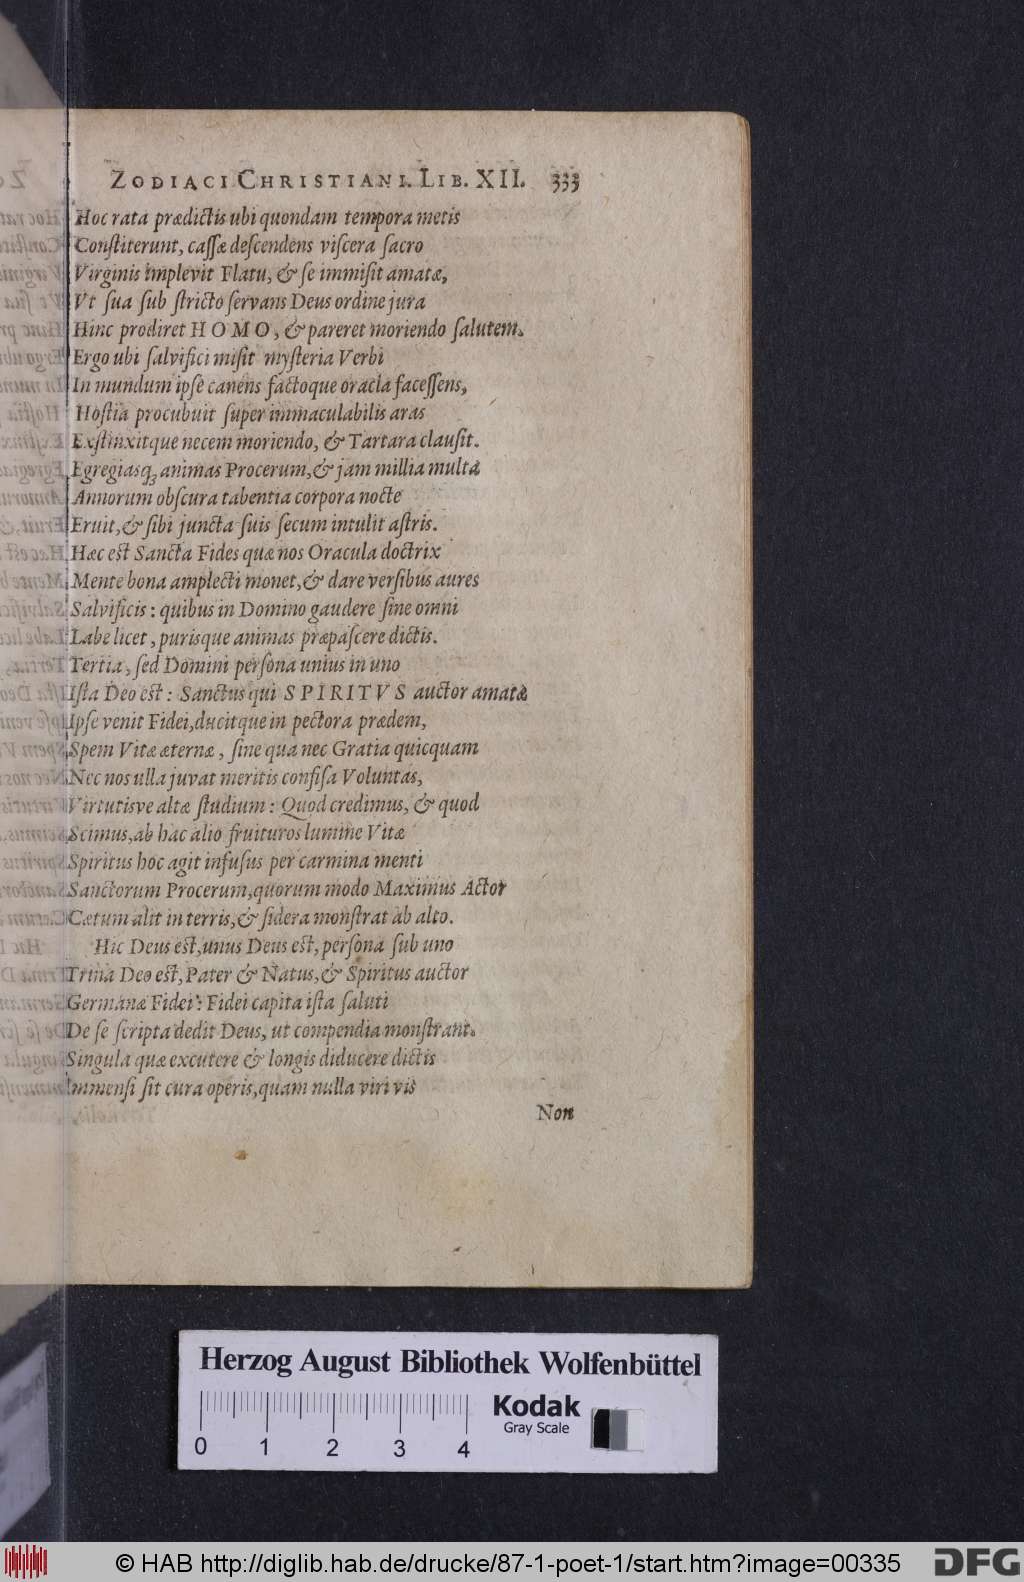 ZODIACI CHRISTIANI. LIB. XII. 333
Hoc rata prædictis ubi quondam tempora metis
Constiterunt, cassæ descendens viscera sacro
Virginis implevit Flatu, & se immisit amatæ,
Vt sua sub stricto servans Deus ordine jura
Hinc prodiret HOMO, & pareret moriendo salutem.
Ergo ubi salvifici misit mysteria Verbi
In mundum ipse canens factoque oracla facessens,
Hostia procubuit super immaculabilis aras
Exstinxitque necem moriendo, & Tartara clausit.
Egregiasq; animas Procerum, & jam millia multa
Annorum obscura tabentia corpora nocte
Eruit, & sibi juncta suis secum intulit astris.
Hæc est Sancta Fides quæ nos Oracula doctrix
Mente bona amplecti monet, & dare versibus aures
Salvificis: quibus in Domino gaudere sine omni
Labe licet, purisque animas præpascere dictis.
Tertia, sed Domini persona unius in uno
Ista Deo est: Sanctus qui SPIRITVS auctor amatæ
Ipse venit Fidei, ducitque in pectora prædem,
Spem Vitæ æternæ, sine qua nec Gratia quicquam
Nec nos ulla juvat meritis confisa Voluntas,
Virtutisve altæ studium: Quod credimus, & quod
Scimus, ab hac alio fruituros lumine Vitæ
Spiritus hoc agit infusus per carmina menti
Sanctorum Procerum, quorum modo Maximus Actor
Cætum alit in terris, & sidera monstrat ab alto.
Hic Deus est, unus Deus est, persona sub uno
Trina Deo est, Pater & Natus, & Spiritus auctor
Germanæ Fidei: Fidei capita ista saluti
De se scripta dedit Deus, ut compendia monstrant.
Singula quæ excutere & longis diducere dictis
Immensi sit cura operis, quam nulla viri vis
Non
Herzog August Bibliothek Wolfenbüttel
Kodak
Gray Scale
0 1 2 3 4
© HAB http://diglib.hab.de/drucke/87-1-poet-1/start.htm?image=00335
DFG